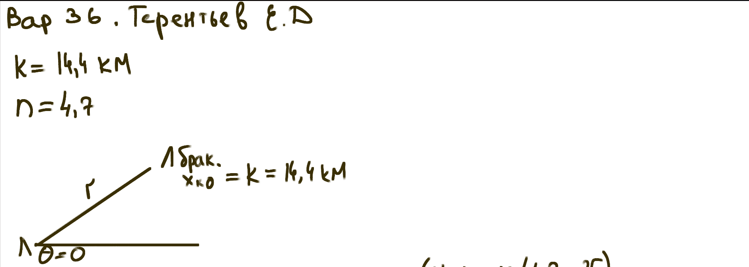 Вар 36. Терентьев Е.Д
k = 14,4 км
n = 4,7
Λ брак.
r
xк0 = k = 14,4 км
Λ θ=0